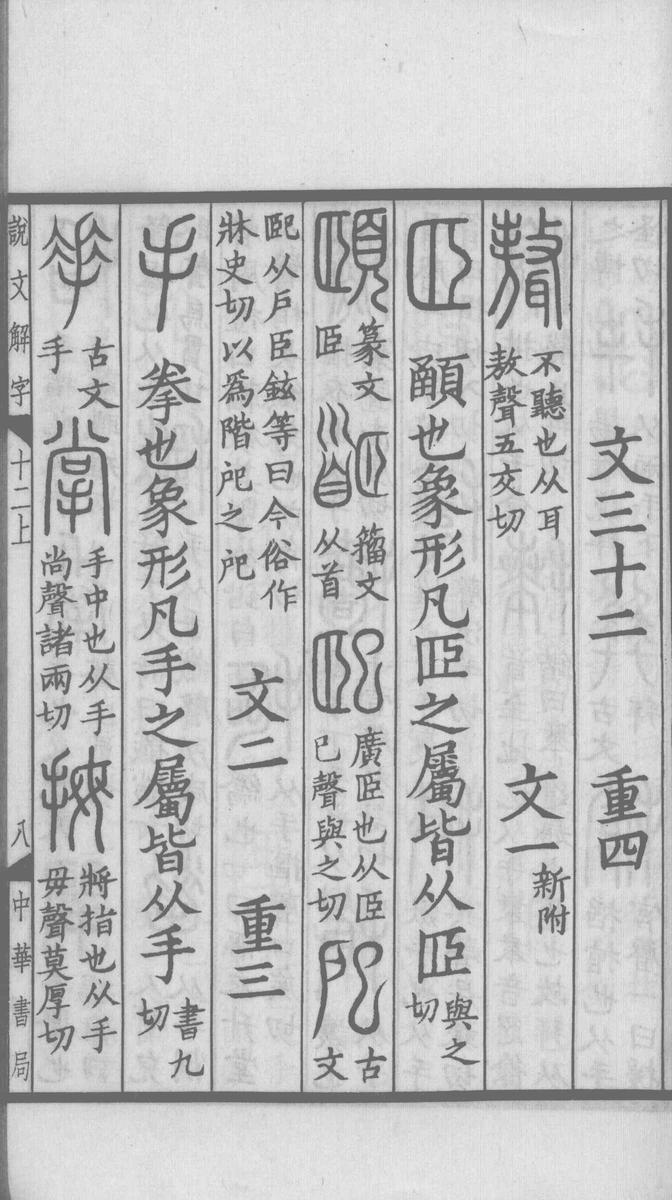 文三十二　重四
聱 不聽也从耳敖聲五交切　文一新附
𦣞 顄也象形凡𦣞之屬皆从𦣞與之切
頤 篆文𦣞 𩠡 籀文从首 巸 廣𦣞也从𦣞巳聲與之切 𢨪 古文
巸从戶臣鉉等曰今俗作牀史切以爲階戺之戺　文二　重三
手 拳也象形凡手之屬皆从手書九切
𠦒 古文手 掌 手中也从手尚聲諸兩切 拇 將指也从手毋聲莫厚切
說文解字 十二上 八 中華書局